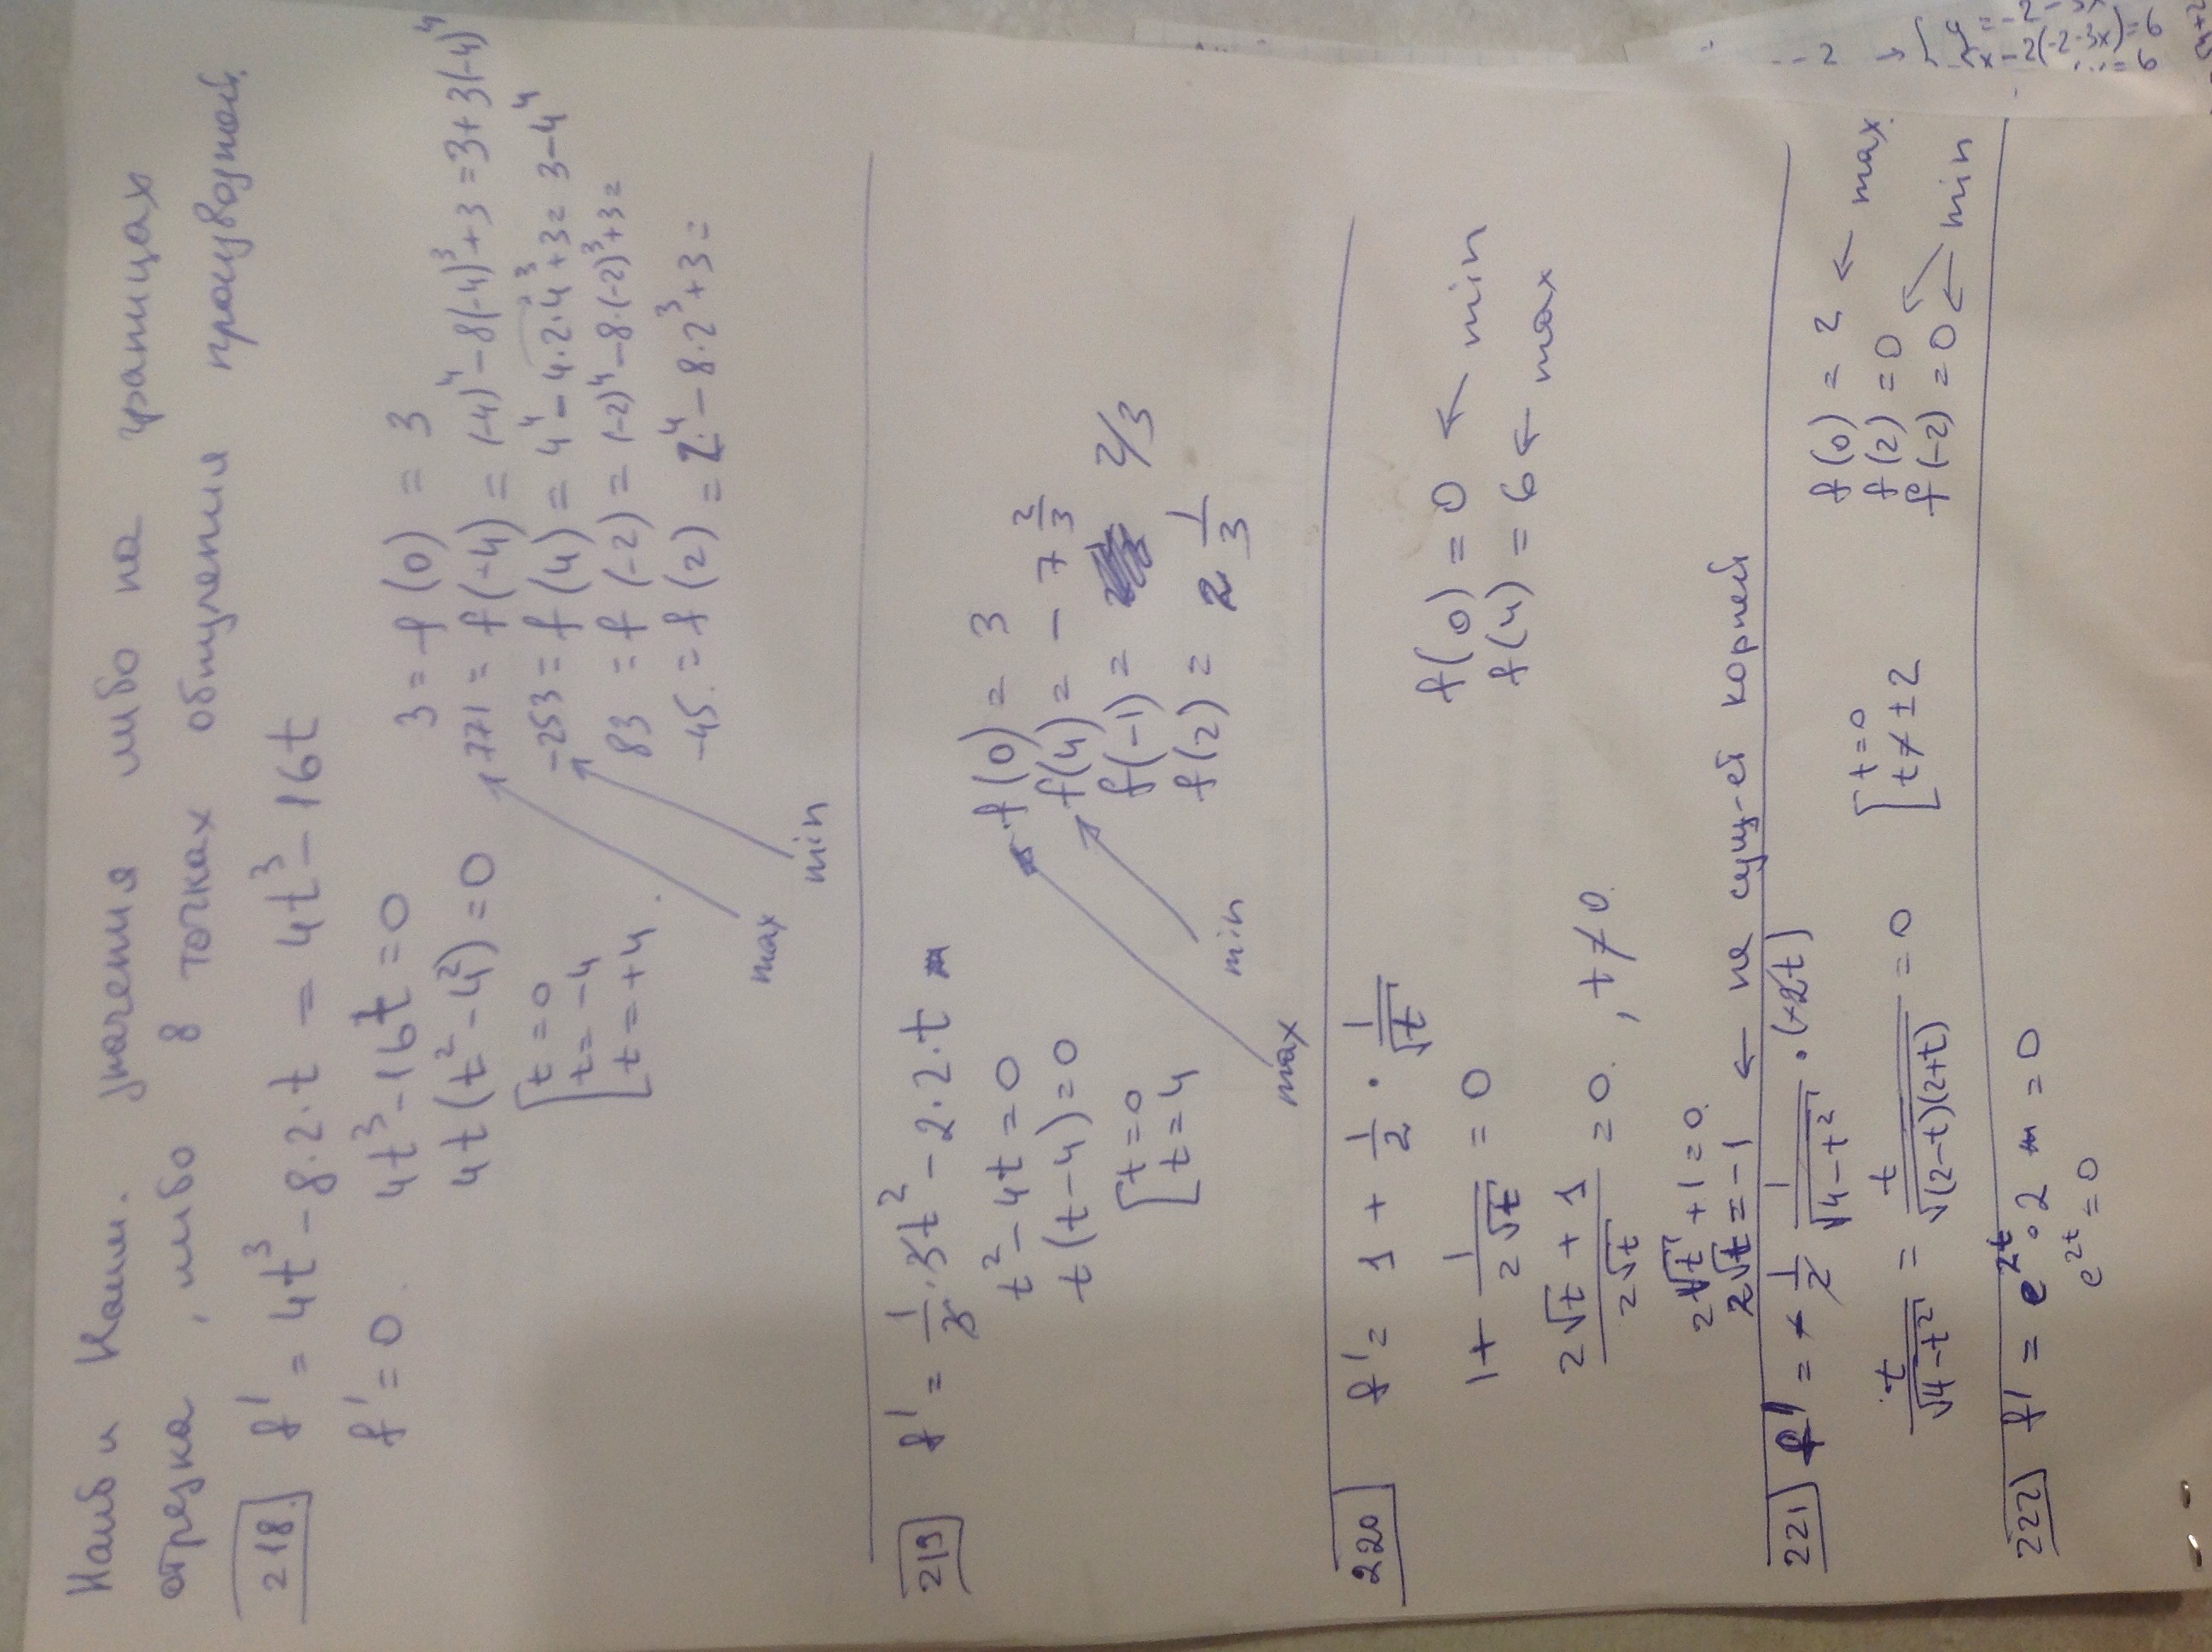 Наиб и Наим. значения либо на границах
отрезка, либо в точках обнуления производной.
218. f' = 4t³ - 8·2·t = 4t³ - 16t
f' = 0. 4t³ - 16t = 0
4t(t² - 4²) = 0
[ t = 0
t = -4
t = +4.
3 = f(0) = 3
771 = f(-4) = (-4)⁴ - 8(-4)³ + 3 = 3 + 3(-4)⁴
-253 = f(4) = 4⁴ - 4·2·4³ + 3 = 3 - 4⁴
83 = f(-2) = (-2)⁴ - 8·(-2)³ + 3 =
-45. = f(2) = 2⁴ - 8·2³ + 3 =
max
min
219 f' = 1/3 · 3t² - 2·2·t
t² - 4t = 0
t(t - 4) = 0
[ t = 0
t = 4
f(0) = 3
f(4) = -7 2/3
f(-1) = 2/3
f(2) = 2 1/3
max
min
220 f' = 1 + 1/2 · 1/√t
1 + 1/(2√t) = 0
(2√t + 1)/(2√t) = 0, t ≠ 0.
2√t + 1 = 0
2√t = -1 ← не сущ-ет корней
f(0) = 0 ← min
f(4) = 6 ← max
221 f' = + 1/2 · 1/√(4 - t²) · (+2t)
t/√(4 - t²) = t/√((2-t)(2+t)) = 0
[ t = 0
t ≠ ±2
f(0) = 2 ← max.
f(2) = 0
f(-2) = 0 ← min
222 f' = e²ᵗ · 2 = 0
e²ᵗ = 0
-2(-2-3x)=6